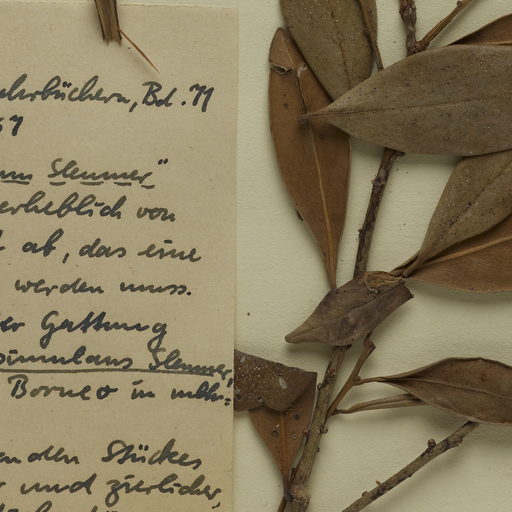 ahrbüchern, Bd. 71
57
um Sleumer"
erheblich von
t ab, das eine
werden muss.
er Gattung
simulans Sleumer,
Borneo in
enden Stückes
und zierlicher,